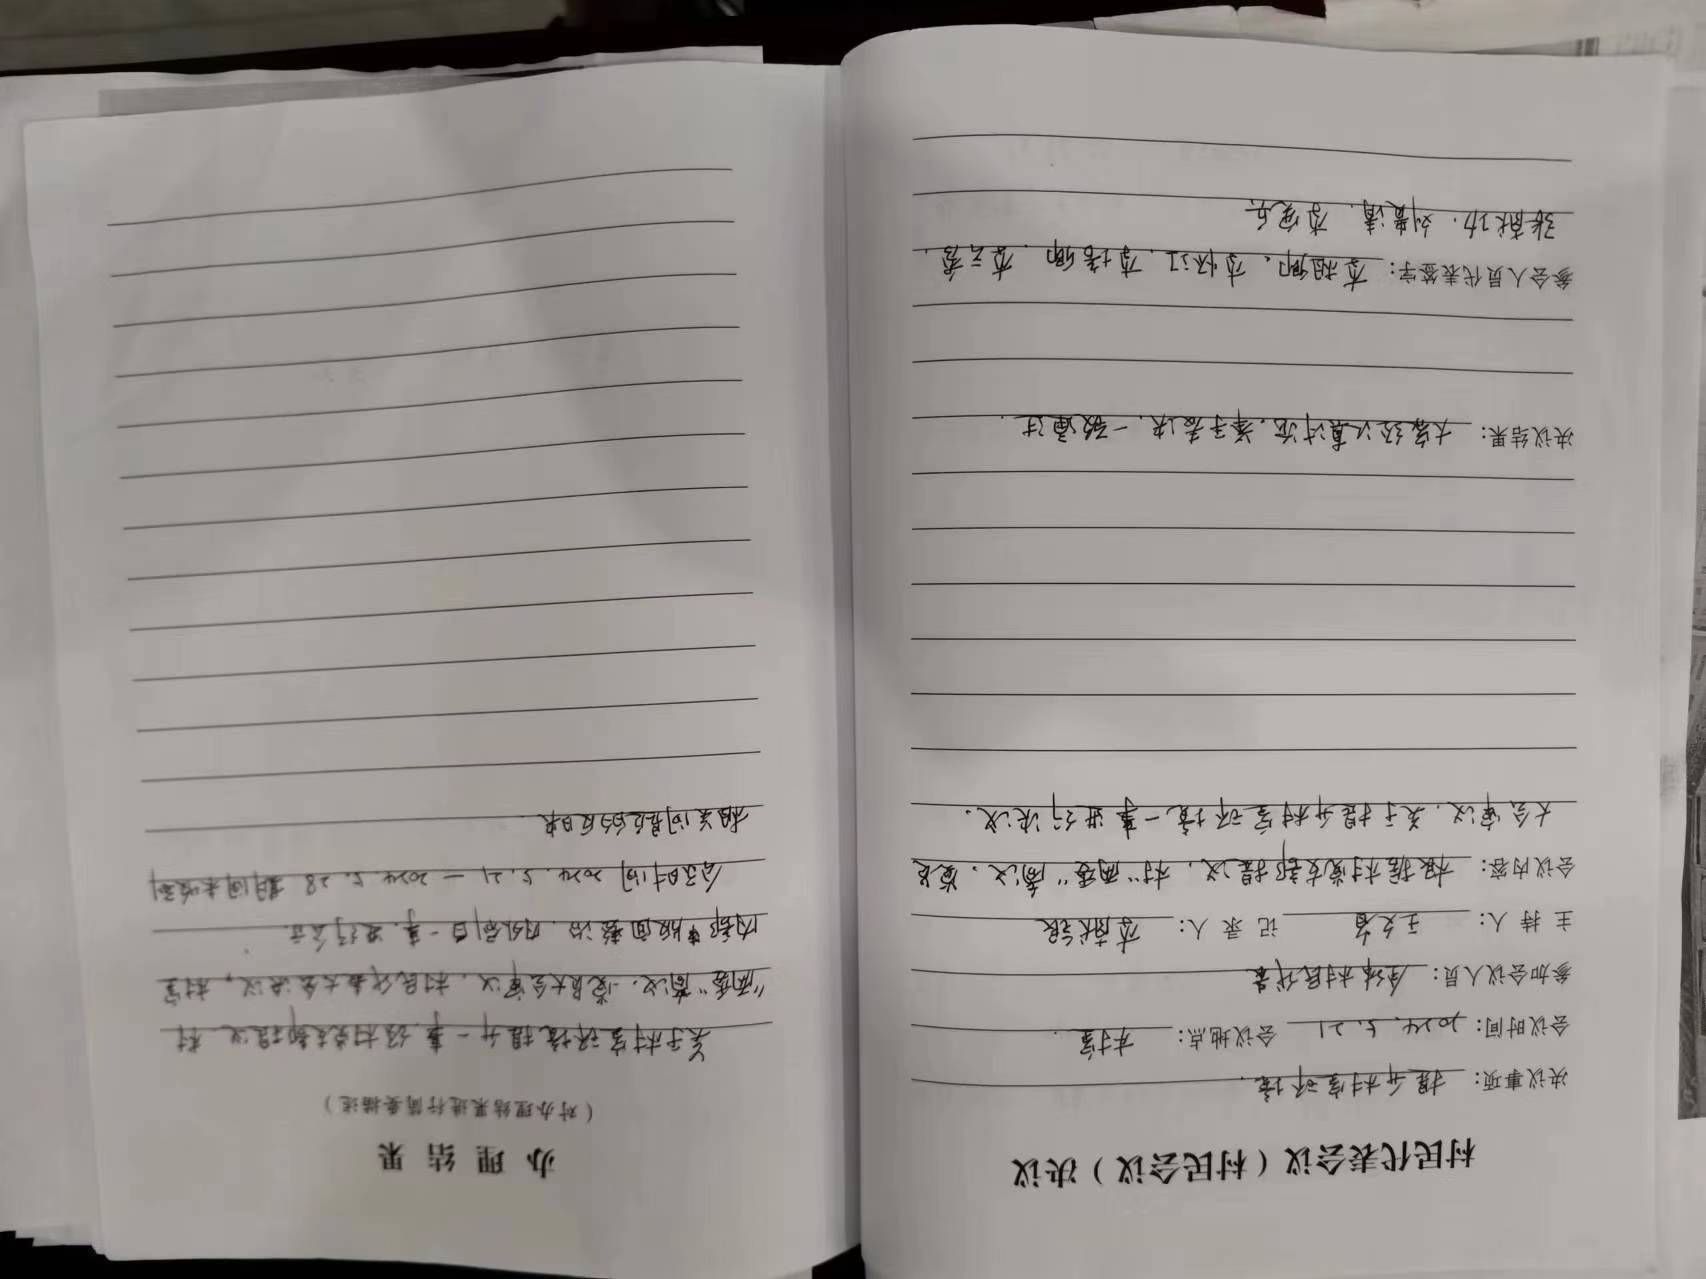 村民代表会议（村民会议）决议
决议事项：提升村室环境.
会议时间：2024.5.21 会议地点：村室.
参加会议人员：全体村民代表
主 持 人：王文省 记 录 人：李献银
会议内容：根据村党支部提议，村“两委”商议，党员
大会审议，关于提升村室环境一事进行决议.
决议结果：大家经认真讨论，举手表决，一致通过.
参会人员代表签字：李相卿、李怀江、李培卿、李云秀、
张献功、刘贵清、李宝兵
办 理 结 果
（对办理结果进行简要描述）
关于村室环境提升一事经村党支部提议，村
“两委”商议，党员大会审议，村民代表大会决议，村室
内部版面整治，内外刷白一事，进行公示.
公示时间 2024.5.21—2024.5.28 期间未收到
相关问题的反映.